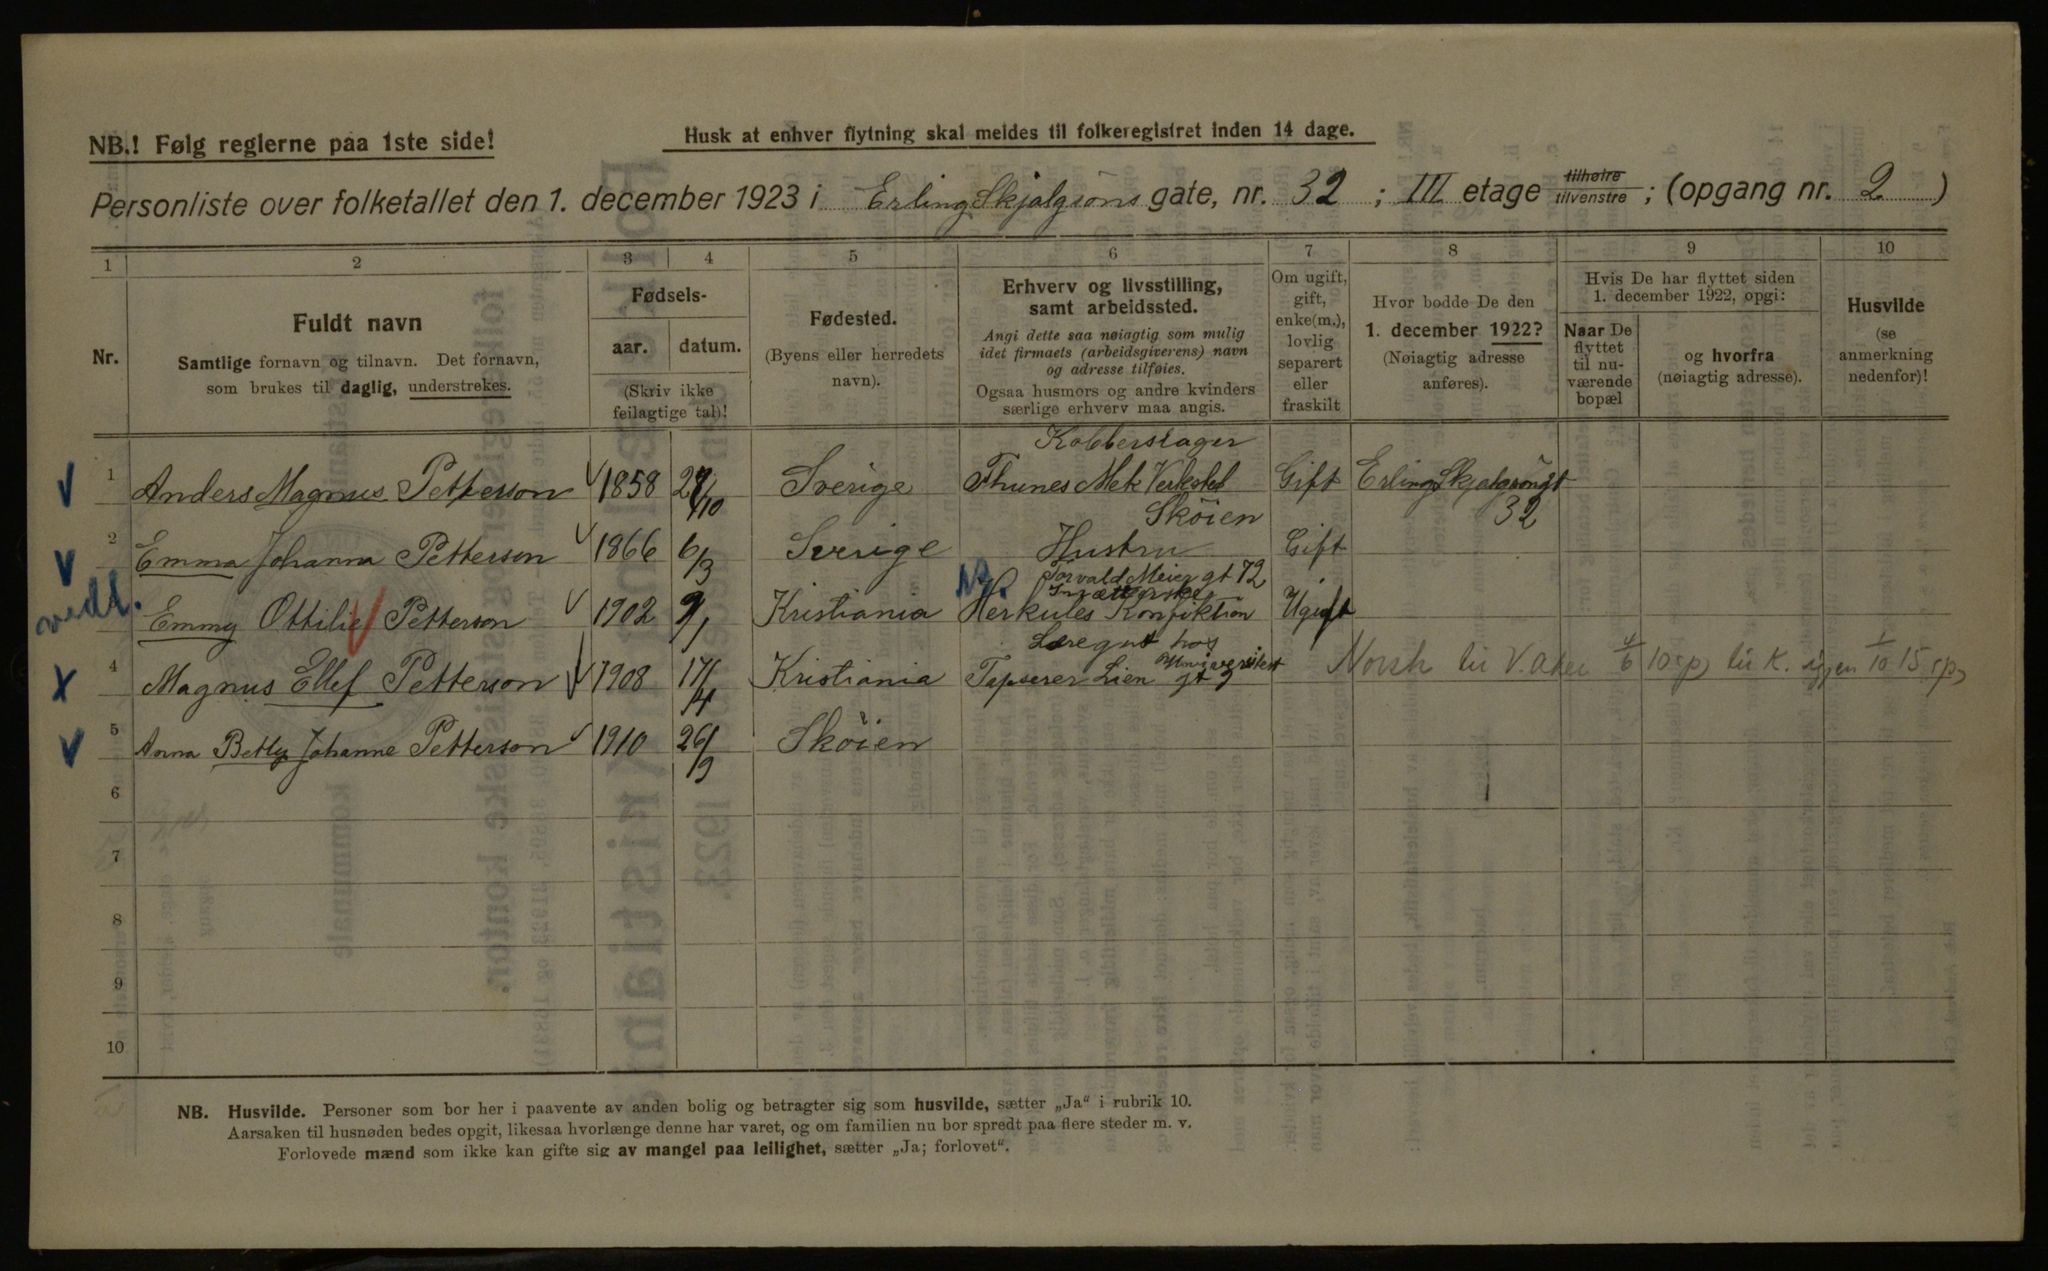 NB.! Følg reglerne paa 1ste side!
Husk at enhver flytning skal meldes til folkeregistret inden 14 dage.
Personliste over folketallet den 1. december 1923 i Erling Skjalgsøns gate, nr. 32 ; III etage tilhøire tilvenstre ; (opgang nr. 2 )
1 2 3 4 5 6 7 8 9 10
Nr.
Fuldt navn
Samtlige fornavn og tilnavn. Det fornavn,
som brukes til daglig, understrekes.
Fødsels-
aar. datum.
(Skriv ikke
feilagtige tal)!
Fødested.
(Byens eller herredets
navn).
Erhverv og livsstilling,
samt arbeidssted.
Angi dette saa nøiagtig som mulig
idet firmaets (arbeidsgiverens) navn
og adresse tilføies.
Ogsaa husmors og andre kvinders
særlige erhverv maa angis.
Om ugift,
gift,
enke(m.),
lovlig
separert
eller
fraskilt
Hvor bodde De den
1. december 1922?
(Nøiagtig adresse
anføres).
Hvis De har flyttet siden
1. december 1922, opgi:
Naar De
flyttet
til nu-
værende
bopæl
og hvorfra
(nøiagtig adresse).
Husvilde
(se
anmerkning
nedenfor)!
Kobberslager
1 Anders Magnus Petterson 1858 27/10 Sverige Thunes Mek Verksted Gift Erling Skjalgsønsgt
Skøien 32
2 Emma Johanna Petterson 1866 6/3 Sverige Hustru Gift
Torvald Meier gt 72
vedl. Emmy Ottilie Petterson 1902 9/1 Kristiania Herkules Konfektion Ugift
Læregut hos
4 Magnus Ellef Petterson 1908 17/4 Kristiania Tapserer Lien Universitets gt 9 Norsk til V. Aker 4/6 10 sp, til K. igjen 1/10 15 sp,
5 Anna Betty Johanne Petterson 1910 26/9 Skøien
6
7
8
9
10
NB. Husvilde. Personer som bor her i paavente av anden bolig og betragter sig som husvilde, sætter „Ja“ i rubrik 10.
Aarsaken til husnøden bedes opgit, likesaa hvorlænge denne har varet, og om familien nu bor spredt paa flere steder m. v.
Forlovede mænd som ikke kan gifte sig av mangel paa leilighet, sætter „Ja; forlovet“.